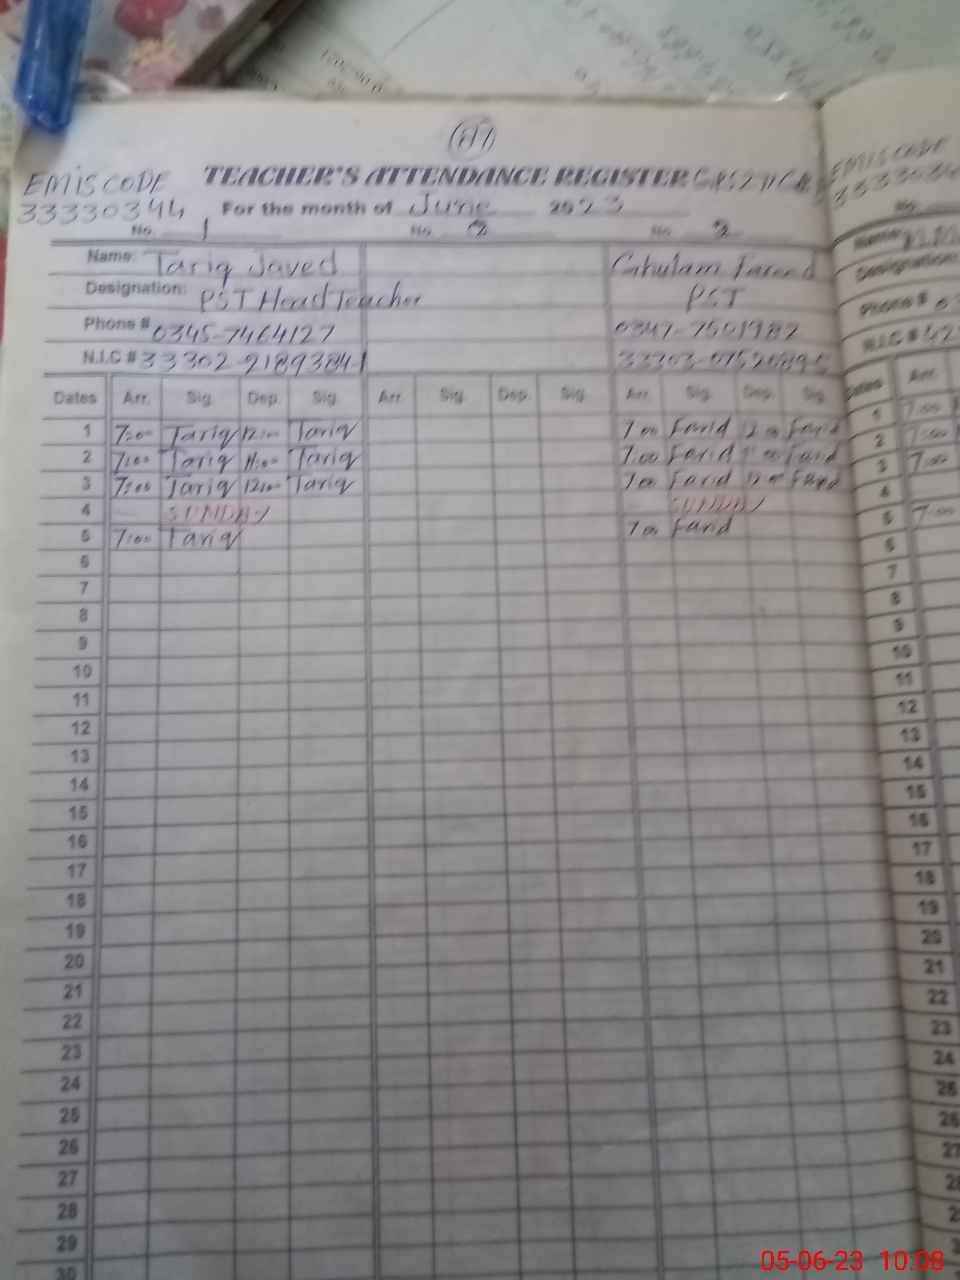 (81)
EMIS CODE TEACHER'S ATTENDANCE REGISTER
33330344 For the month of June 2023
No. 1 No. 2 No. 2
Name: Tariq Javed Ghulam Fareed
Designation: PST Head Teacher PST
Phone # 0345-7464127 0347-7501982
N.I.C # 33302-9189384-1
Dates Arr. Sig. Dep. Sig. Arr. Sig. Dep. Sig. Arr. Sig. Dep. Sig. Dates Arr.
1 7:00 Tariq 12:00 Tariq 7 00 Farid 12 00 Farid 1 7:00
2 7:00 Tariq 11:00 Tariq 7:00 Farid Farid 2 7:00
3 7:00 Tariq 12:00 Tariq 7 00 Farid 12 00 Farid 3 7:00
4 SUNDAY SUNDAY 4
5 7:00 Tariq 7 00 Farid 5 7:00
6 6
7 7
8 8
9 9
10 10
11 11
12 12
13 13
14 14
15 15
16 16
17 17
18 18
19 19
20 20
21 21
22 22
23 23
24 24
25 25
26 26
27 27
28
29
30
EMIS CODE
05-06-23 10:08